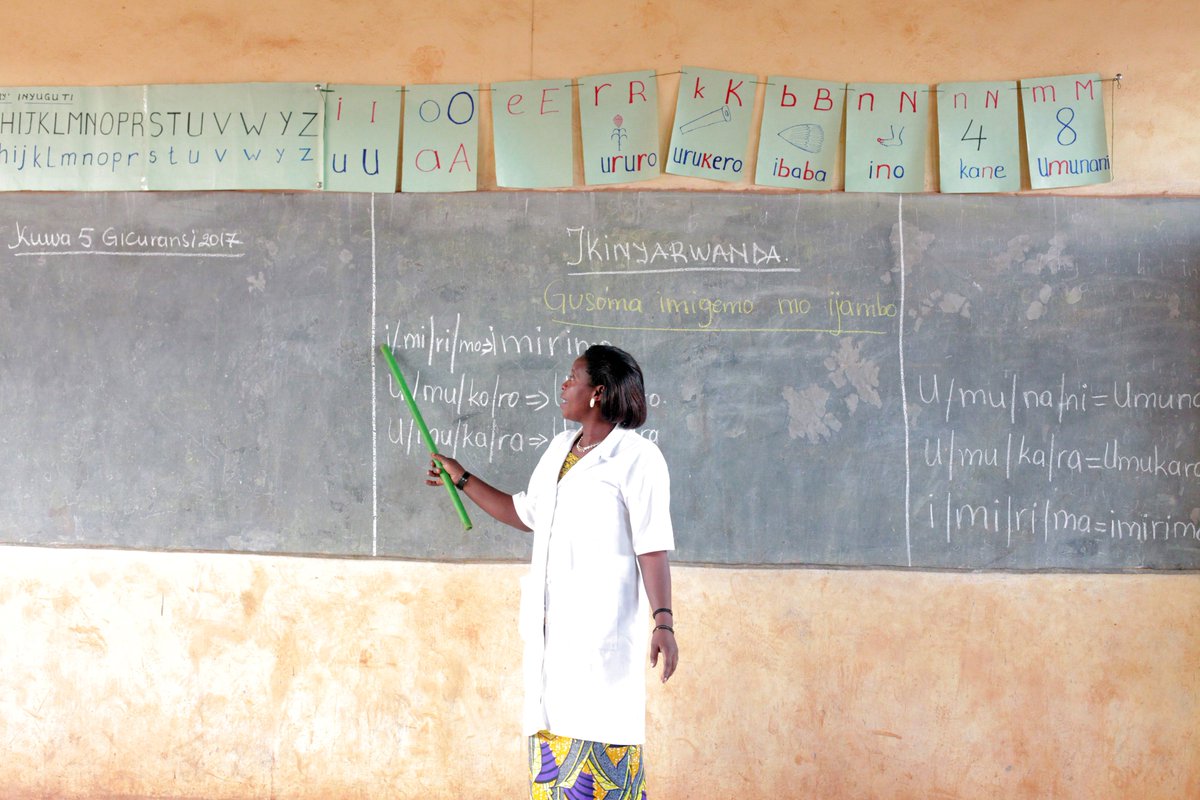 INYUGUTI
HIJKLMNOPRSTUVWYZ
hijklmnoprstuvwyz
i I
u U
o O
a A
e E
r R
ururo
k K
urukero
b B
ibaba
n N
ino
n N
4
kane
m M
8
Umunani
Kuwa 5 Gicuransi 2017
IKINYARWANDA.
Gusoma imigemo mo ijambo
i/mi/ri/mo=>
U/mu/ko/ro=>
U/mu/ka/ra=>
U/mu/na/ni=
U/mu/ka/ra=Umukara
i/mi/ri/ma=imirima